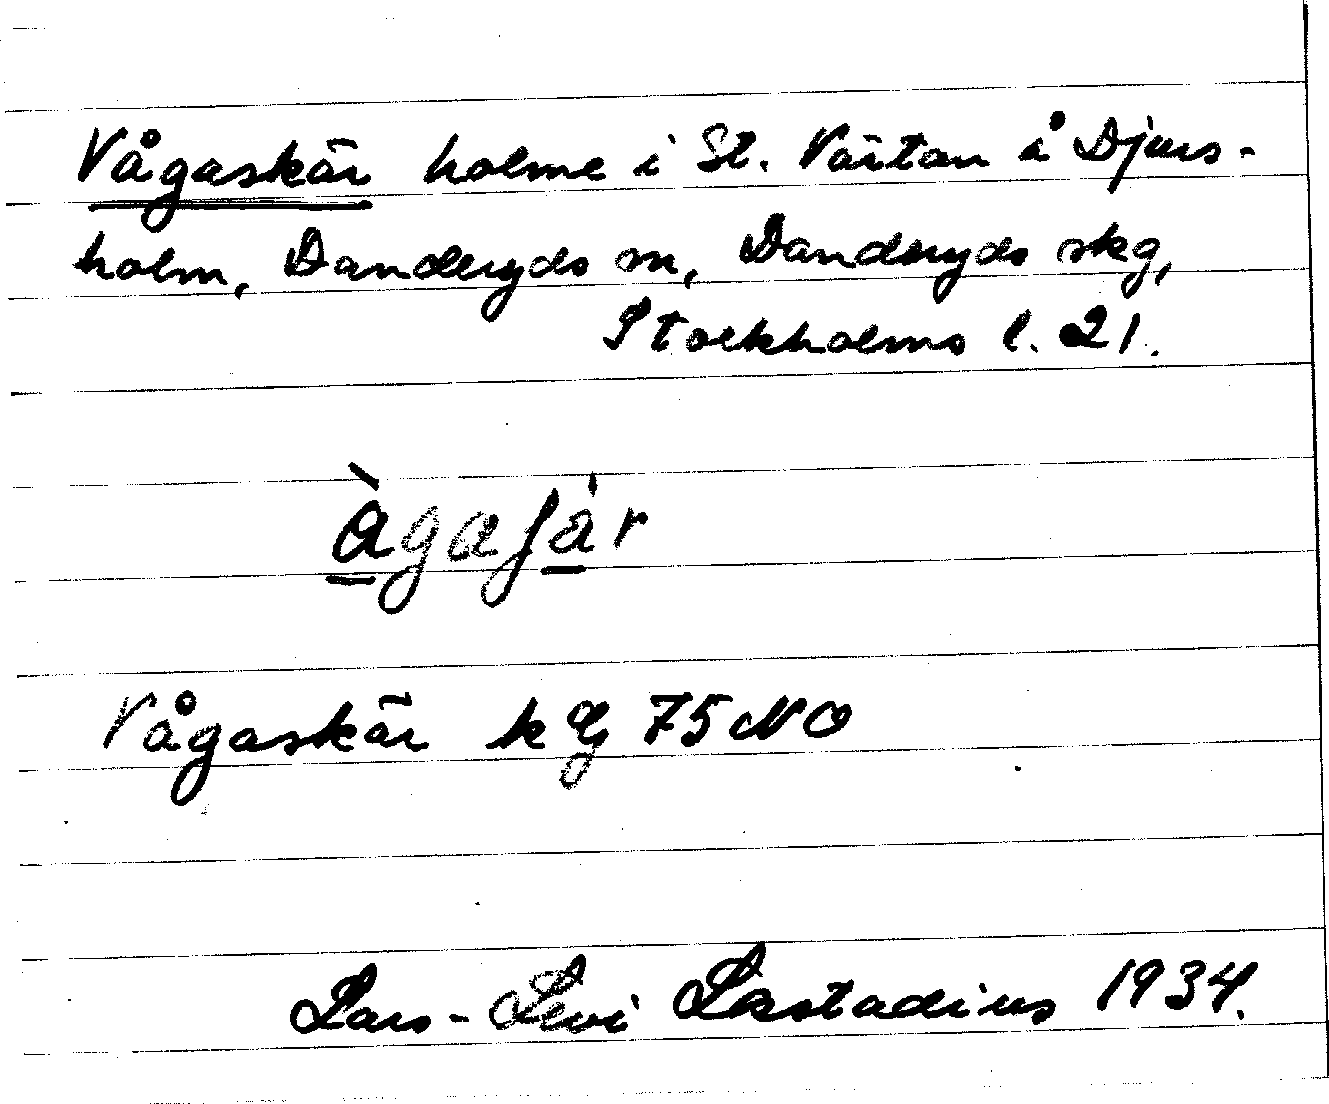 Vågaskär holme i St. Värtan å Djurs-
holm, Danderyds sn, Danderyds skg,
Stockholms l. 21.
àgaʃá̱r
Vågaskär k Eg 75 NO
Lars-Levi Læstadius 1934.